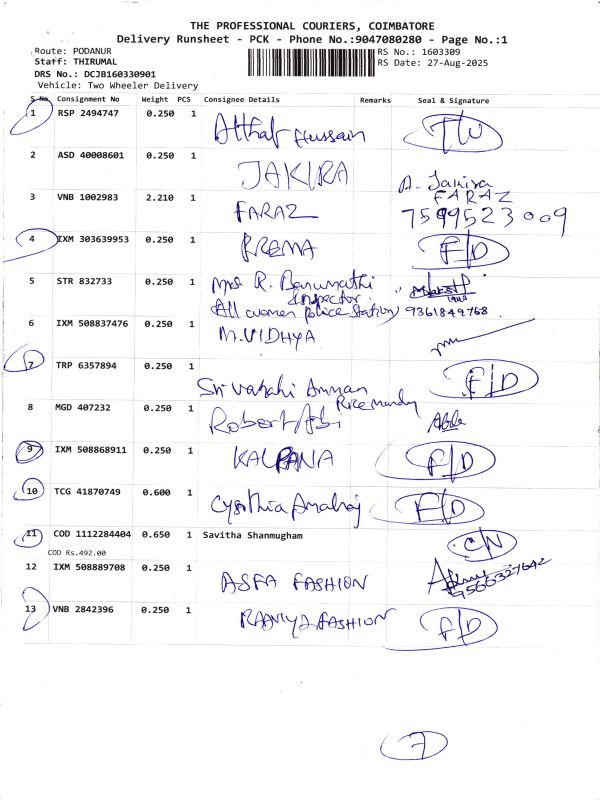 THE PROFESSIONAL COURIERS, COIMBATORE
Delivery Runsheet - PCK - Phone No.:9047080280 - Page No.:1
Route: PODANUR
Staff: THIRUMAL
DRS No.: DCJB160330901
Vehicle: Two Wheeler Delivery
RS No.: 1603309
RS Date: 27-Aug-2025
S No. Consignment No Weight PCS Consignee Details Remarks Seal & Signature
1 RSP 2494747 0.250 1 Althaf Hussain
2 ASD 40008601 0.250 1 JAKIRA A. Jakira
3 VNB 1002983 2.210 1 FARAZ FARAZ
7599523009
4 IXM 303639953 0.250 1 PREMA F/D
5 STR 832733 0.250 1 Mrs R. Banumathi
Inspector
All women police station) 9361849768
6 IXM 508837476 0.250 1 M.VIDHYA
7 TRP 6357894 0.250 1 Sri Varahi Amman F/D
Rice mandy
8 MGD 407232 0.250 1 Robert
9 IXM 508868911 0.250 1 KALPANA F/D
10 TCG 41870749 0.600 1 Cynthia Amalraj F/D
11 COD 1112284404 0.650 1 Savitha Shanmugham C/N
COD Rs.492.00
12 IXM 508889708 0.250 1 ASFA FASHION
9566327642
13 VNB 2842396 0.250 1 RAANYA FASHION F/D
7